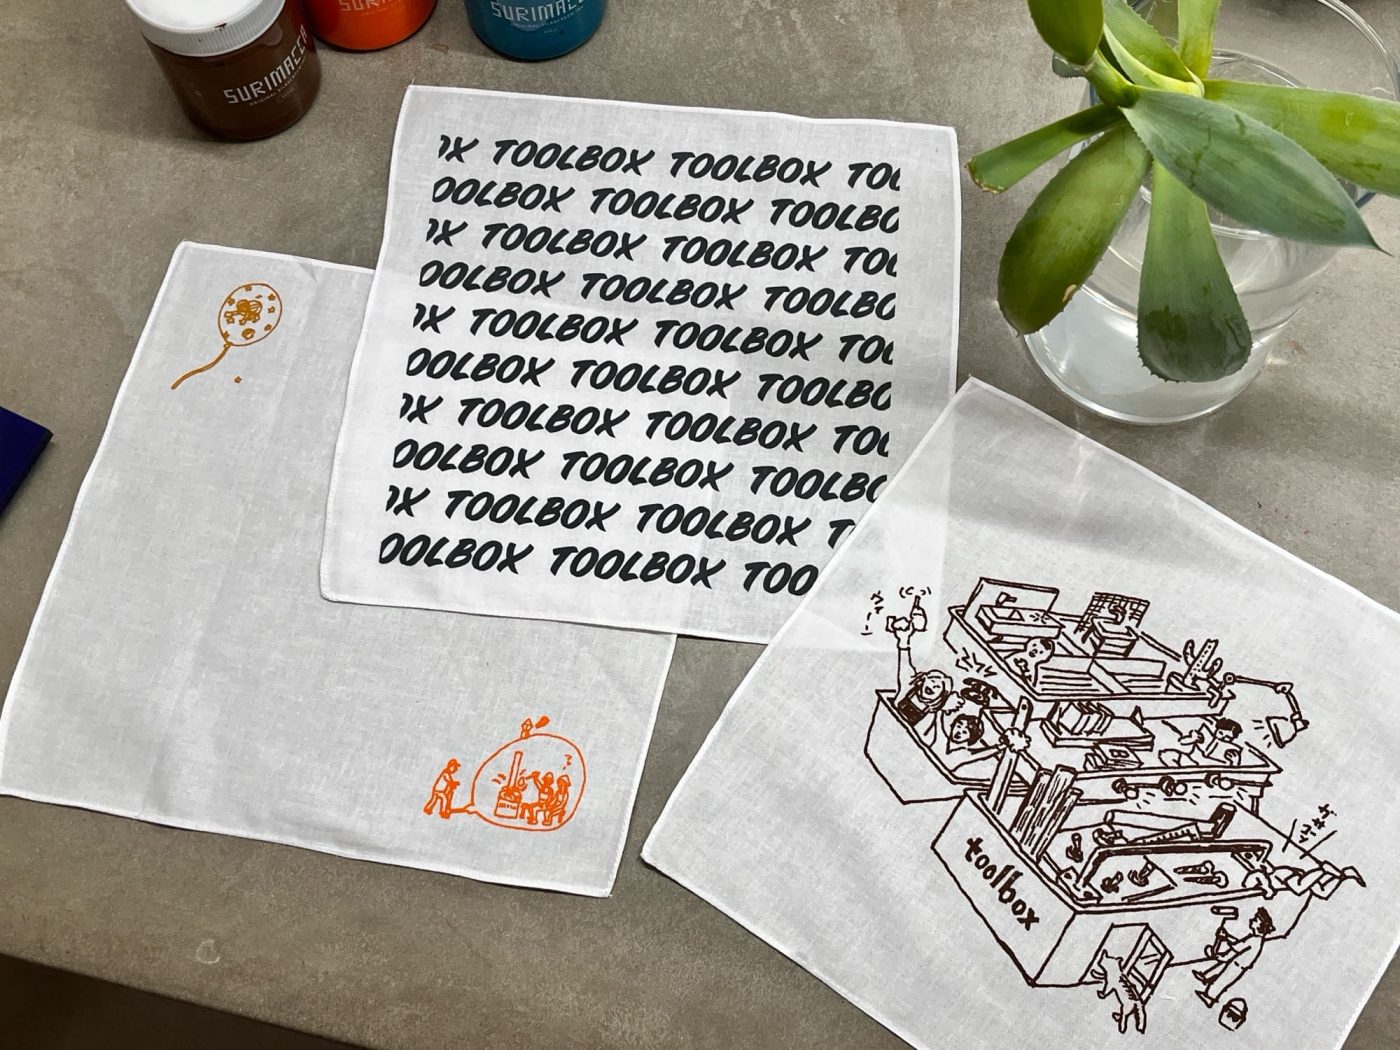 SURIMACCA
SURIMACCA
SURIMACCA
OX TOOLBOX TOOLBOX TOO
OOLBOX TOOLBOX TOOLBO
OX TOOLBOX TOOLBOX TOO
OOLBOX TOOLBOX TOOLBO
OX TOOLBOX TOOLBOX TOO
OOLBOX TOOLBOX TOOLBO
OX TOOLBOX TOOLBOX TOO
OOLBOX TOOLBOX TOOLBO
OX TOOLBOX TOOLBOX T
OOLBOX TOOLBOX TOO
ウィー
toolbox